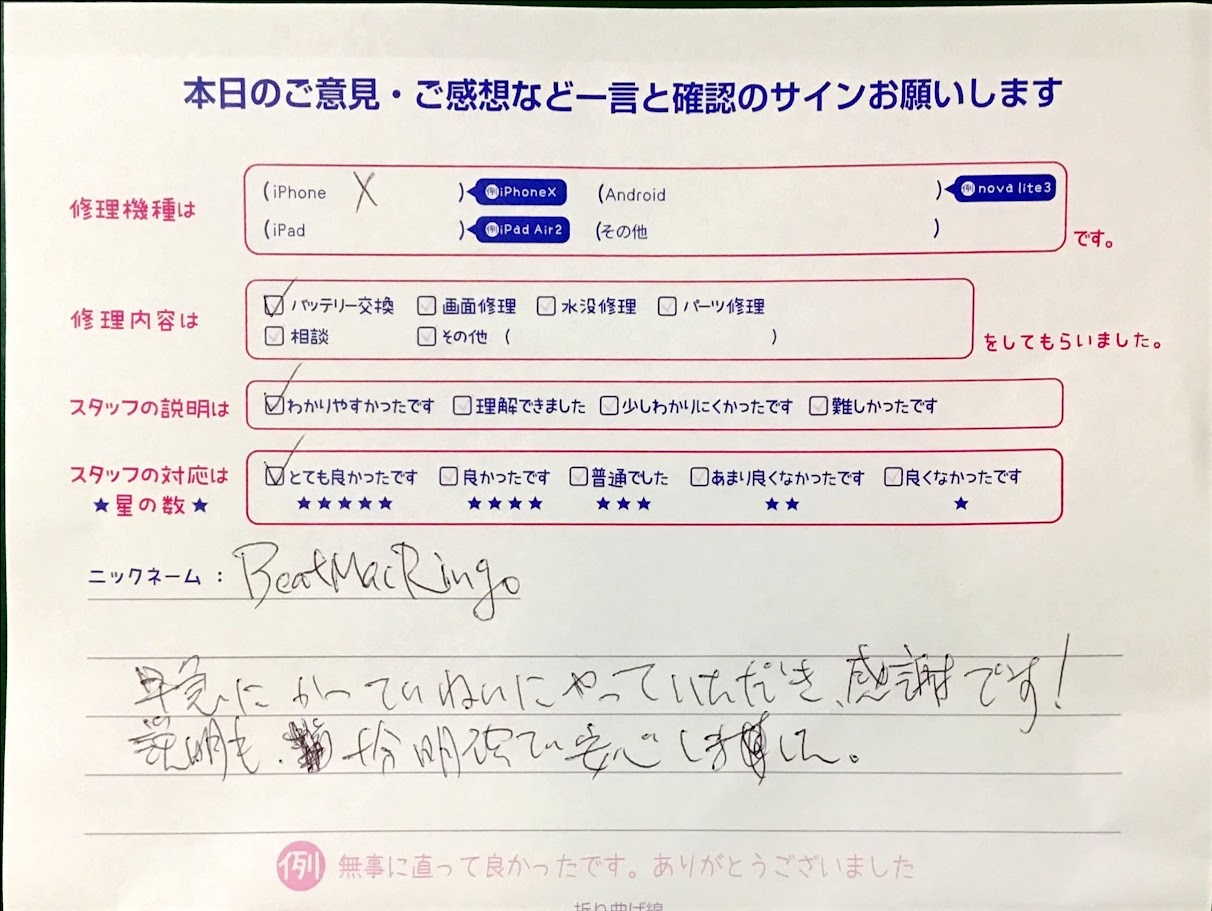 本日のご意見・ご感想など一言と確認のサインお願いします
修理機種は (iPhone X ) 例iPhoneX (Android ) 例nova lite3
(iPad ) 例iPad Air2 (その他 ) です。
修理内容は バッテリー交換 画面修理 水没修理 パーツ修理
相談 その他 ( ) をしてもらいました。
スタッフの説明は わかりやすかったです 理解できました 少しわかりにくかったです 難しかったです
スタッフの対応は とても良かったです 良かったです 普通でした あまり良くなかったです 良くなかったです
★星の数★ ★★★★★ ★★★★ ★★★ ★★ ★
ニックネーム : BeatMacRingo
早急にかつていねいにやっていただき、感謝です!
説明も、十分明確で安心しました。
例 無事に直って良かったです。ありがとうございました